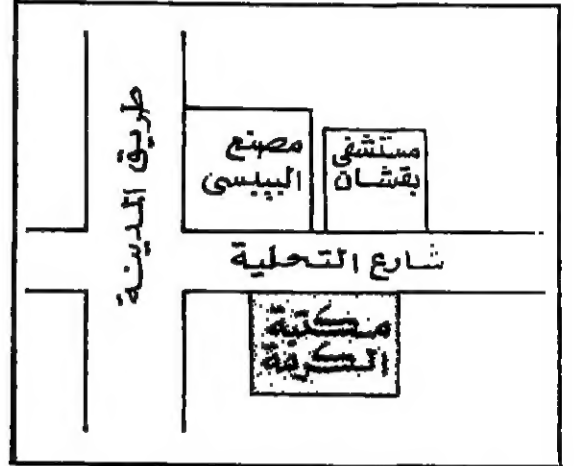 طريق المدينة
مصنع
البيبسى
مستشفى
بقشان
شارع التحلية
مكتبة